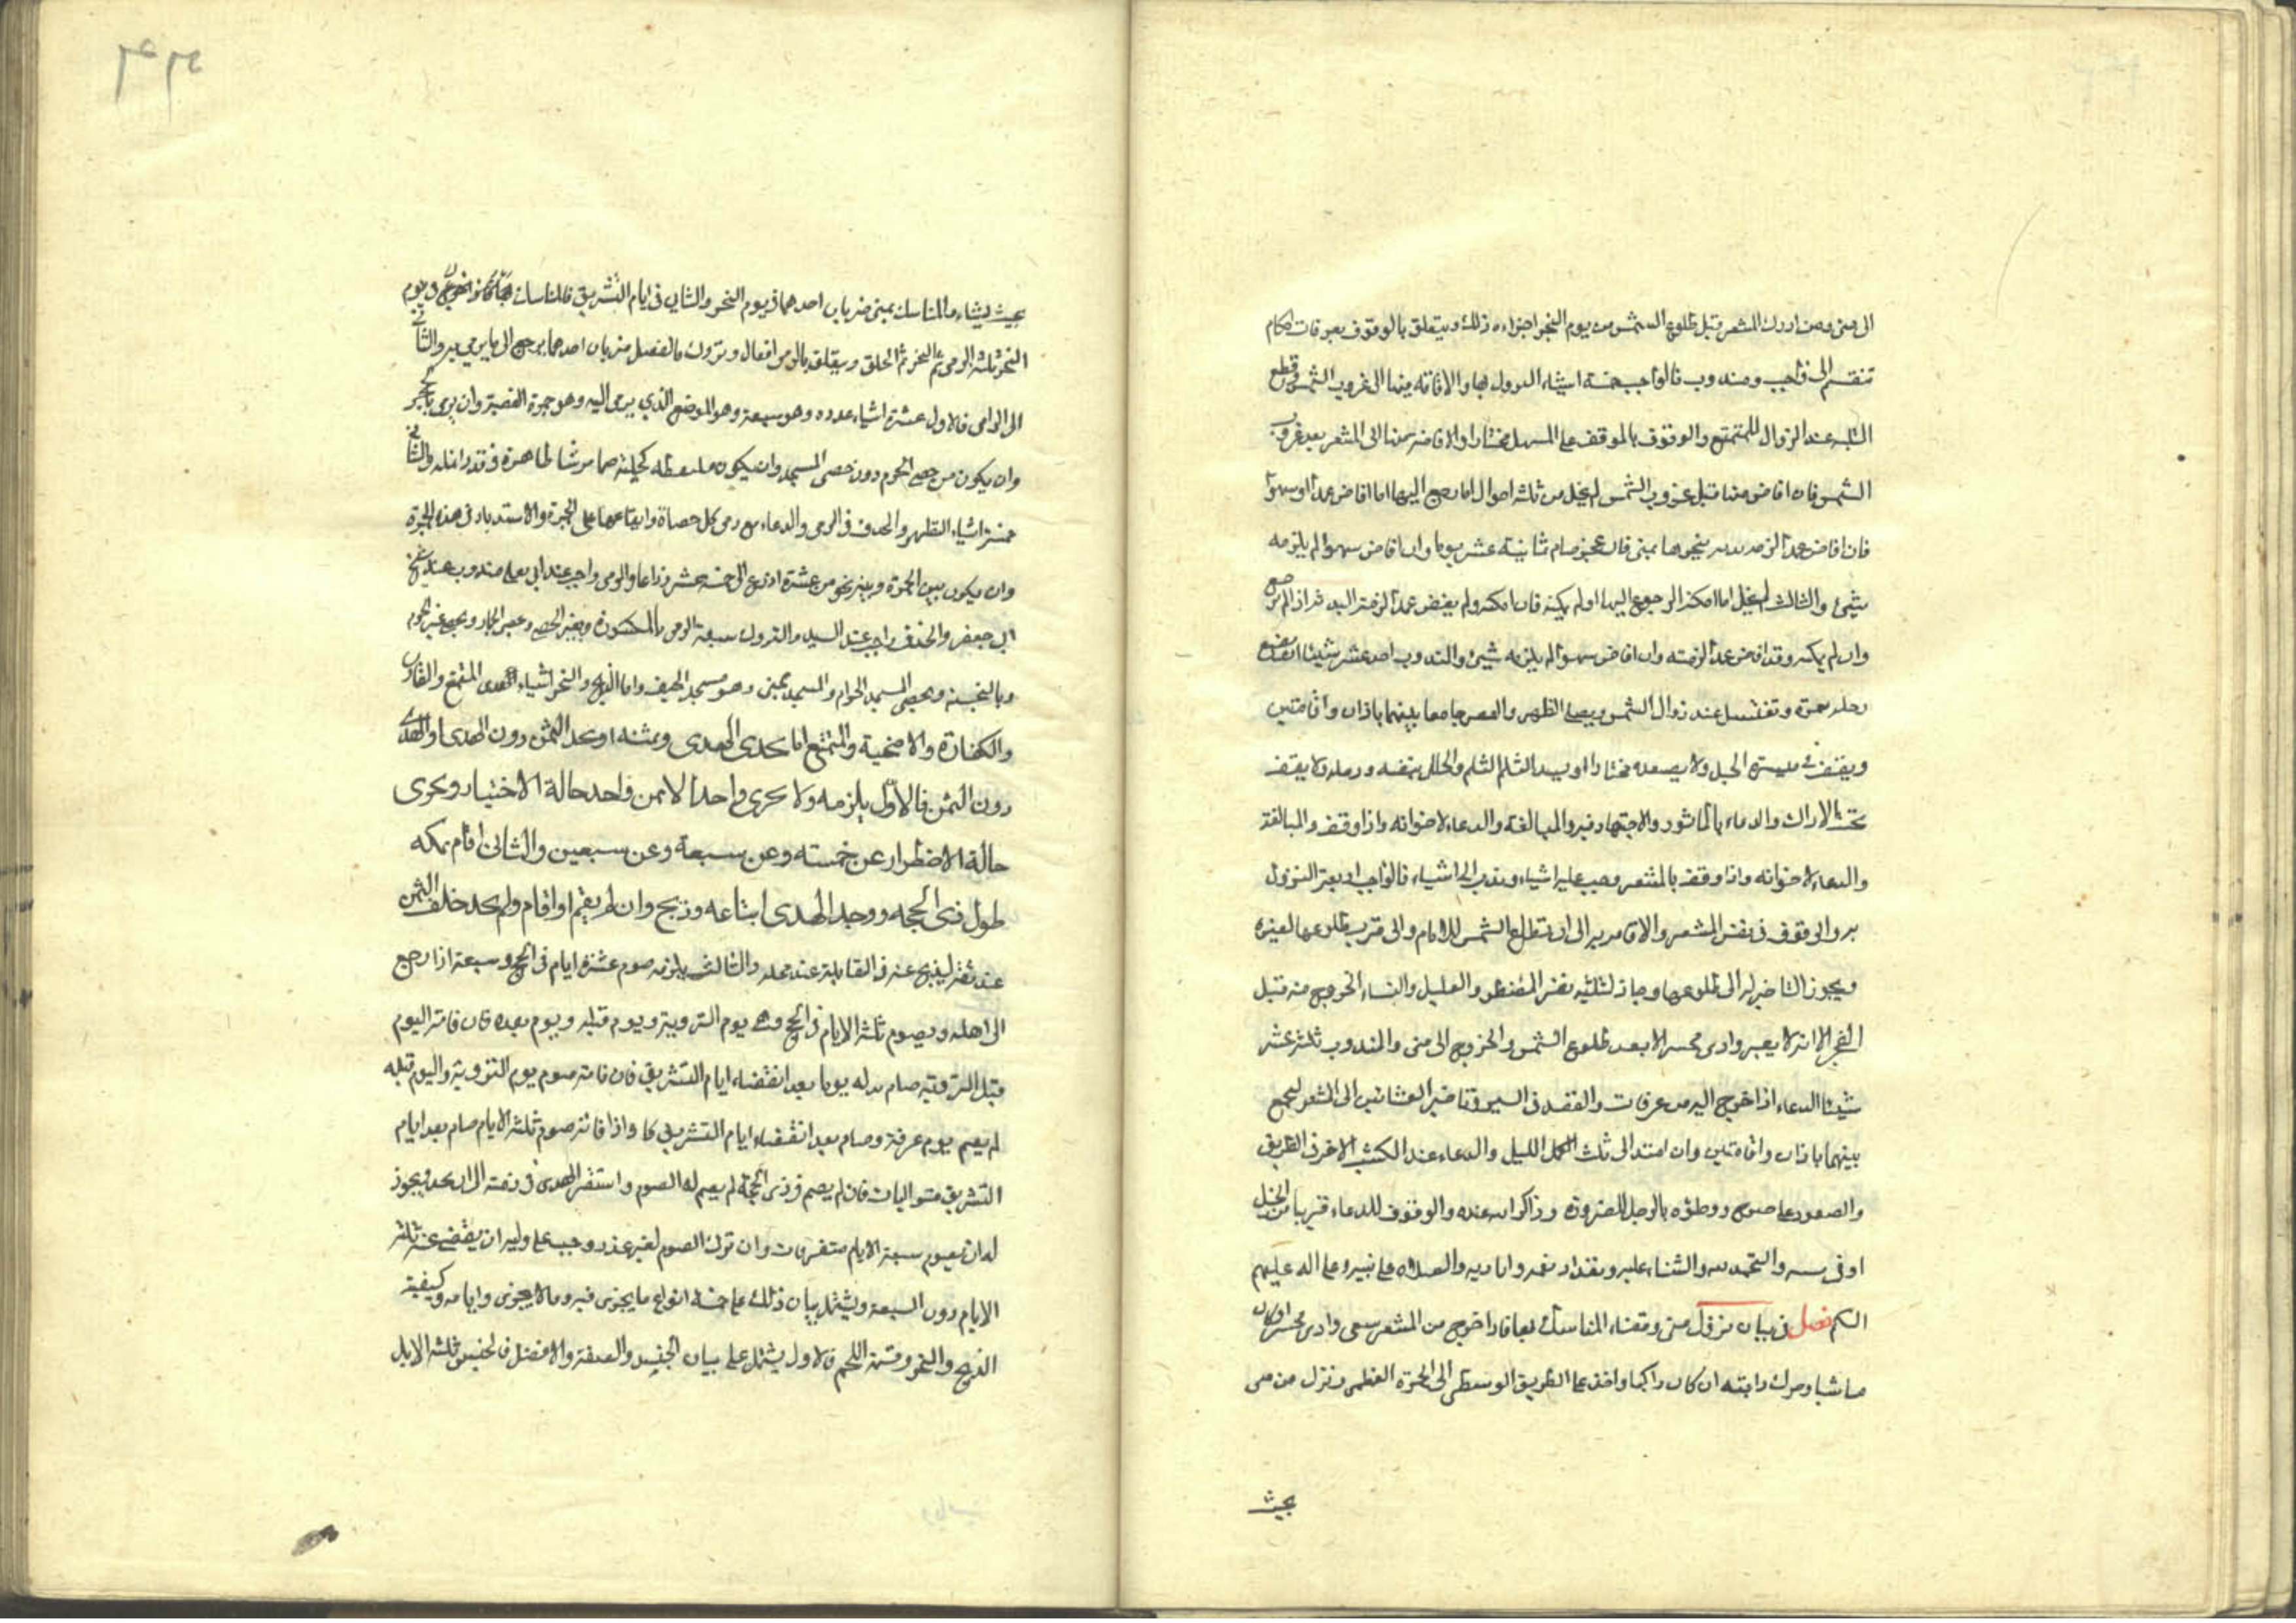 الى منى ومن ادرك المشعر قبل طلوع الشمس من يوم النحر اجزاه ذلك ويتعلق بالوقوف بعرفات احكام
تنقسم الى واجب ومندوب فالواجب خمسة اشياء النزول بها والاقامة بها الى غروب الشمس وقطع
التلبية عند الزوال للمتمتع والوقوف بالموقف على السهل مختارا والافاضة منها الى المشعر بعد غروب
الشمس فان افاض منها قبل غروب الشمس لم يخل من ثلثة احوال اما رجع اليها اما افاض عمدا او سهوا
فان افاض عمدا لزمه بدنه ينحرها بمنى فان عجز صام ثمانية عشر يوما وان افاض سهوا لم يلزمه
شيئ والثالث لم يخل اما امكنه الرجوع اليها او لم يمكنه فان امكنه ولم يفض عمدا لزمته البدنة اذا لم يرجع
وان لم يمكنه وقد افاض عمدا لزمته وان افاض سهوا لم يلزمه شيئ والندوب احد عشر شيئا ان يضع
رحله بنمرة وتغتسل عند زوال الشمس ويصلى الظهر والعصر جامعا بينهما باذان واقامتين
ويقف فى ميسرة الجبل ولا يصعده مختارا او يسد الثلم الثلم والخلل بنفسه ورحله ولا يقف
تحت الاراك والدعاء بالماثور والاجتهاد فيه والمبالغة والدعاء لاخوانه واذا وقف والمبالغة
والدعاء لاخوانه واذا وقف بالمشعر وجب عليه اشياء وندب الى اشياء فالواجب اربعة النزول
به والوقوف فى نفس المشعر والاقامة به الى ان تطلع الشمس للامام والى قرب طلوعها لغيره
ويجوز التاخير له الى طلوعها وجاز لثلثه نفر المضطر والعليل والنساء الخروج منه قبل
الفجر الا انه لا يعبر وادى محسر الا بعد طلوع الشمس والخروج الى منى والمندوب ثلثة عشر
شيئا الدعاء اذا خرج اليه من عرفات والقصد فى السير وتاخير العشائين الى المشعر ليجمع
بينهما باذان واقامتين وان امتد الى ثلث الليل والدعاء عند الكثيب الاحمر فى الطريق
والصعود على ووطؤه بالرجل للصرورة وذكر الله عنده والوقوف للدعاء قريبا من الجبل
او فى والتحميد لله والثناء عليه وتعداد نعمه واياديه والصلاه على نبيه وعلى اله عليهم
السلام فصل فى بيان نزول منى وقضاء المناسك بها فاذا خرج من المشعر سعى وادى محسر ان كان
ماشيا وحرك دابته ان كان راكبا واخذ على الطريق الوسطى الى الجمرة العظمى ونزل من منى
بحيث
بحيث يشاء والمناسك بمنى ضربان احدهما فى يوم النحر والثانى فى ايام التشريق فالمناسك فى يوم
النحر ثلثة الرمى ثم النحر ثم الحلق ويتعلق بالرمى افعال وتروك فالفعل ضربان احدهما يرجع الى ما يرمى به والثانى
الى الرامى فالاول عشرة اشياء عدده وهو سبعة وهو الموضع الذي يرمى اليه وهو جمرة القصبة وان يرمى بالحجر
وان يكون من حصى الحرم دون حصى المسجد وان يكون ملتقطه كحيلة صما برشا طاهرة فى قدر انمله والثانى
خمسة اشياء التطهر والحذف فى الرمى والدعاء مع رمى كل حصاة وايقاعها على الجمرة والاستدبار فى هذه الجمرة
وان يكون بين الجمرة وبينه نحو من عشرة اذرع الى خمسه عشر ذراعا والرمى واجب عند ابى يعلى مندوب عند الشيخ
ابى جعفر والخذف واجب عند السيد والتروك سبعة الرمى بالمكسورة وبغير الحصى وبحصى الجمار وبحصى غير الحرم
وبالنجسة وبحصى المسجد الحرام والمسجد بمنى وهو مسجد الخيف واما الذبح والنحر اشياء لهدى المتمتع والقارن
والكفارة والاضحية والمتمتع اما يجد الهدى وثمنه او يجد الثمن دون الهدى او الهدى
دون الثمن فالاوّل يلزمه ولا يجزى واحدا الا من واحد حالة الاختيار ويجزى
حالة الاضطرار عن خمسته وعن سبعة وعن سبعين والثانى اقام بمكه
طول ذى الحجه ووجد الهدى ابتاعه وذبح وان لم يقم او اقام ولم يجد خلف الثمن
عند ثقه ليذبح عنه فى القابلة عند محله والثالث يلزمه صوم عشرة ايام فى الحج وسبعة اذا رجع
الى اهله ويصوم ثلثة الايام فى الحج وهى يوم التروية ويوم قبله ويوم بعده فان فاته اليوم
قبل التروية صام بدله يوما بعد انقضاء ايام التشريق فان فاته صوم يوم التروية واليوم قبله
لم يصم يوم عرفة وصام بعد انقضاء ايام التشريق كا واذا فاته صوم ثلثة الايام صام بعد ايام
التشريق متواليات فان لم يصم فى ذى الحجة لم يصم له الصوم واستقر الهدى فى ذمته الا ان يجد ويجوز
له ان يصوم سبعة الايام متفرقات وان ترك الصوم لغير عذر وجب على وليه ان يقضى عنه ثلثة
الايام دون السبعة ويشتمل بيان ذلك على خمسة انواع ما يجزى فيه وما لا يجزى وايامه وكيفية
الذبح والنحر وقسمة اللحم فالاول يشتمل على بيان الجنس والصفة والافضل فالجنس ثلثة الابل